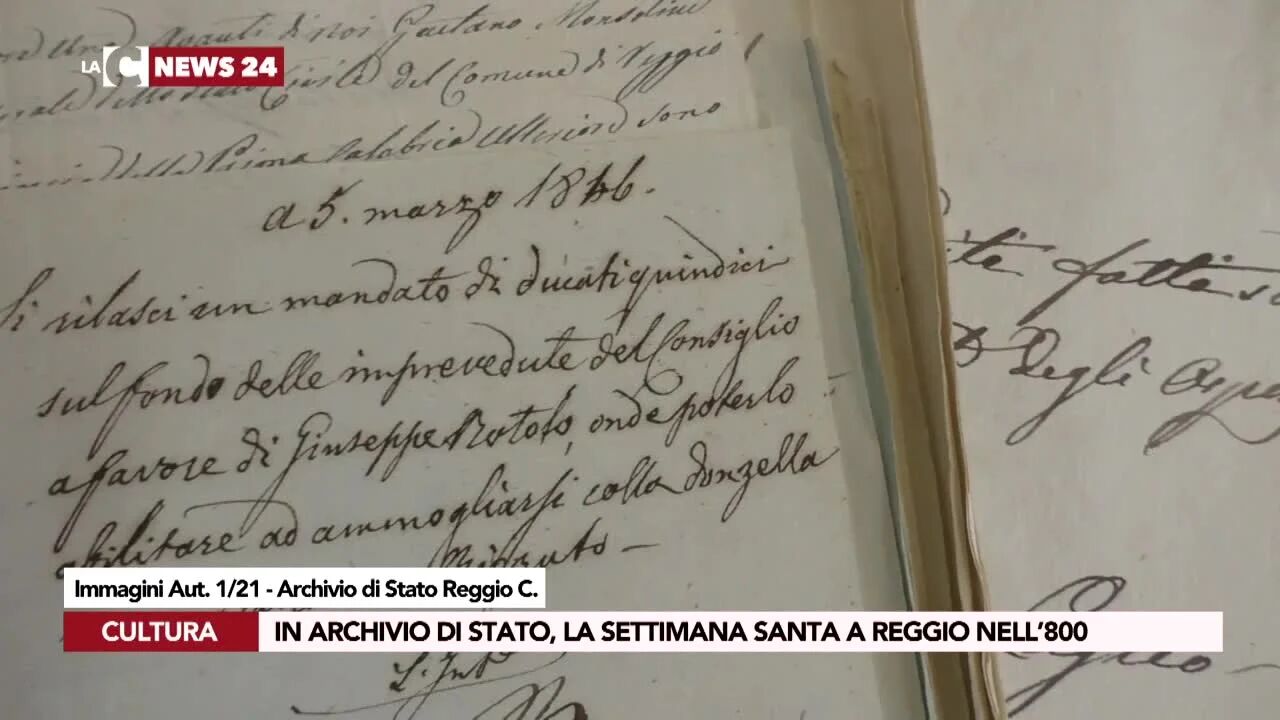 Avanti di Noi Gaetano Monsolini
dello Stato Civile del Comune di Reggio
della Prima Calabria Ulteriore sono
LA C NEWS 24
a 5. marzo 1846.
Si rilasci un mandato di ducati quindici
sul fondo delle imprevedute del Consiglio
a favore di Giuseppe Rotolo, onde poterlo
abilitare ad ammogliarsi colla donzella
fatte
Degli
Immagini Aut. 1/21 - Archivio di Stato Reggio C.
CULTURA
IN ARCHIVIO DI STATO, LA SETTIMANA SANTA A REGGIO NELL'800